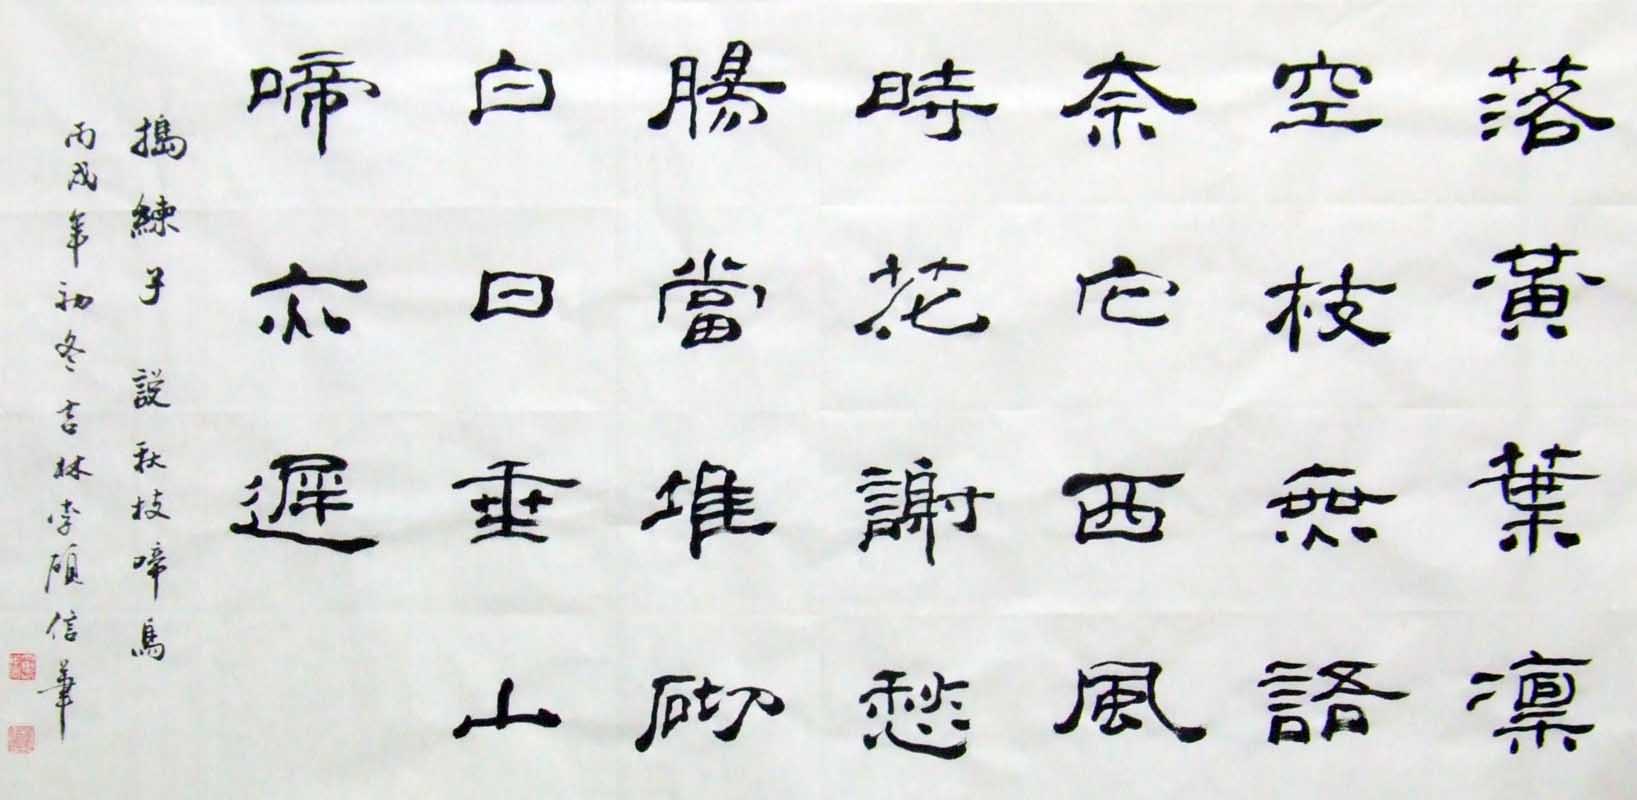 落黃葉凜
空枝無語
奈它西風
時花謝愁
腸當堆砌
白日垂山
啼亦遲
搗練子 說秋枝啼鳥
丙戌年初冬吉林李碩信筆